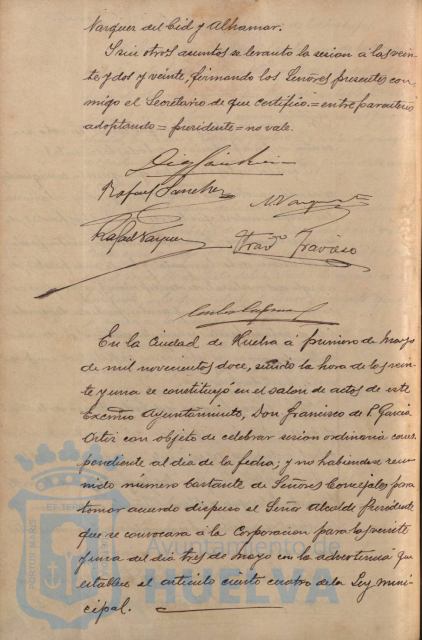 Vazquez del Cid y Alhamar.
I sin otros asuntos se levanto la sesion á las vein-
te y dos y veinte, firmando los Señores presentes con-
migo el Secretario de que certifico.=entre parentesis
adoptando=presidente=no vale.
Rafael Sanchez
Rafael Vazquez
Travieso
En la ciudad de Huelva á primero de Mayo
de mil novecientos doce, siendo la hora de las vein-
te y una se constituyó en el salon de actos de este
Excmo Ayuntamiento, Don Francisco de P. Garcia
Ortiz con objeto de celebrar sesion ordinaria corres
pondiente al dia de la fecha; y no habiendose reu-
nido número bastante de Señores Concejales para
tomar acuerdo dispuso el Señor Alcalde Presidente
que se convocara á la Corporacion para las veinte
y una del dia tres de Mayo con la advertencia que
establece el articulo ciento cuatro de la Ley muni-
cipal.
PORTUS MARIS
HUELVA